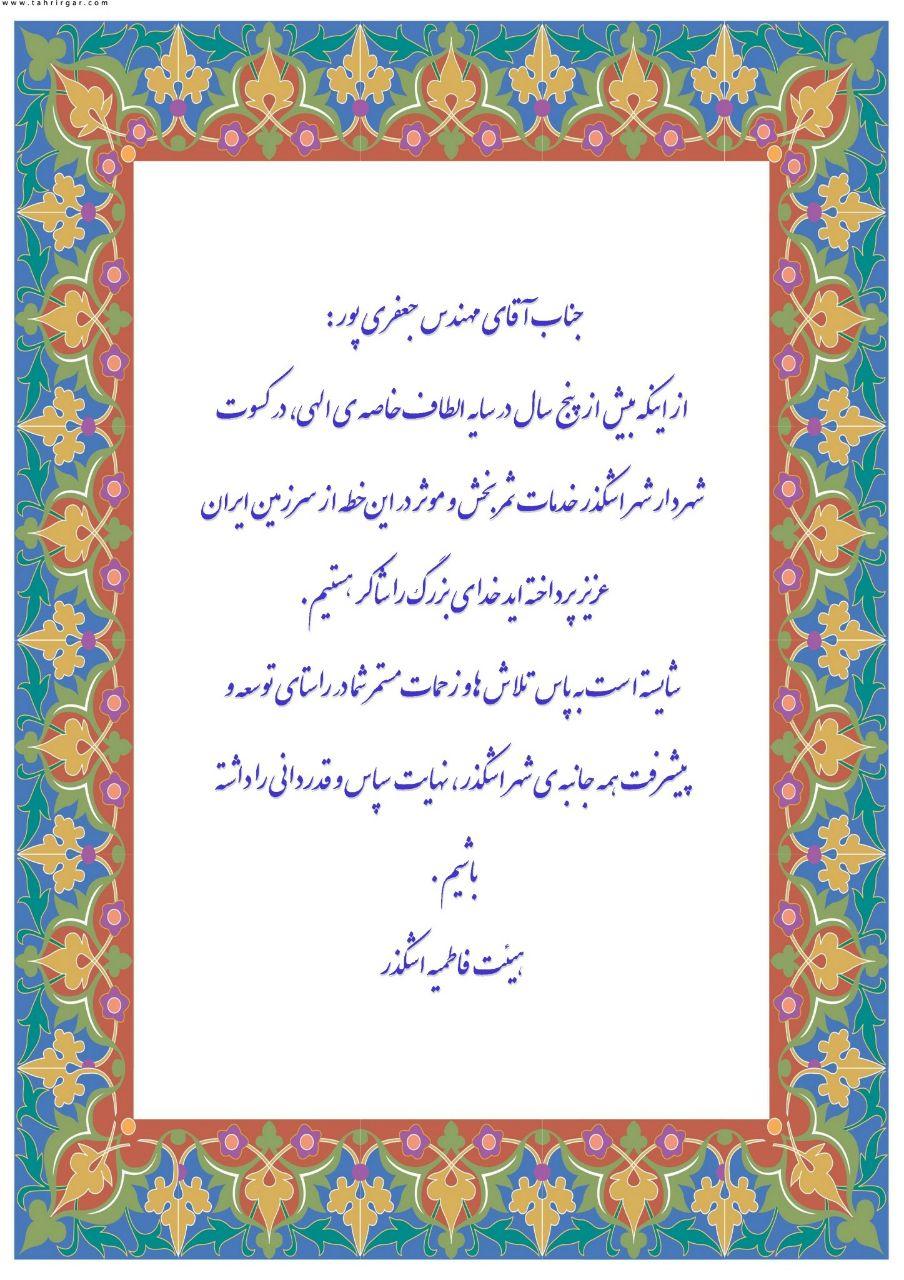 www.tahrirgar.com
جناب آقای مهندس جعفری پور :
از اینکه بیش از پنج سال در سایه الطاف خاصه ی الهی، در کسوت
شهردار شهر اشکذر خدمات ثمربخش و موثر در این خطه از سرزمین ایران
عزیز پرداخته اید خدای بزرگ را شاکر هستیم .
شایسته است به پاس تلاش ها و زحمات مستمر شما در راستای توسعه و
پیشرفت همه جانبه ی شهر اشکذر، نهایت سپاس و قدردانی را داشته
باشیم .
هیئت فاطمیه اشکذر